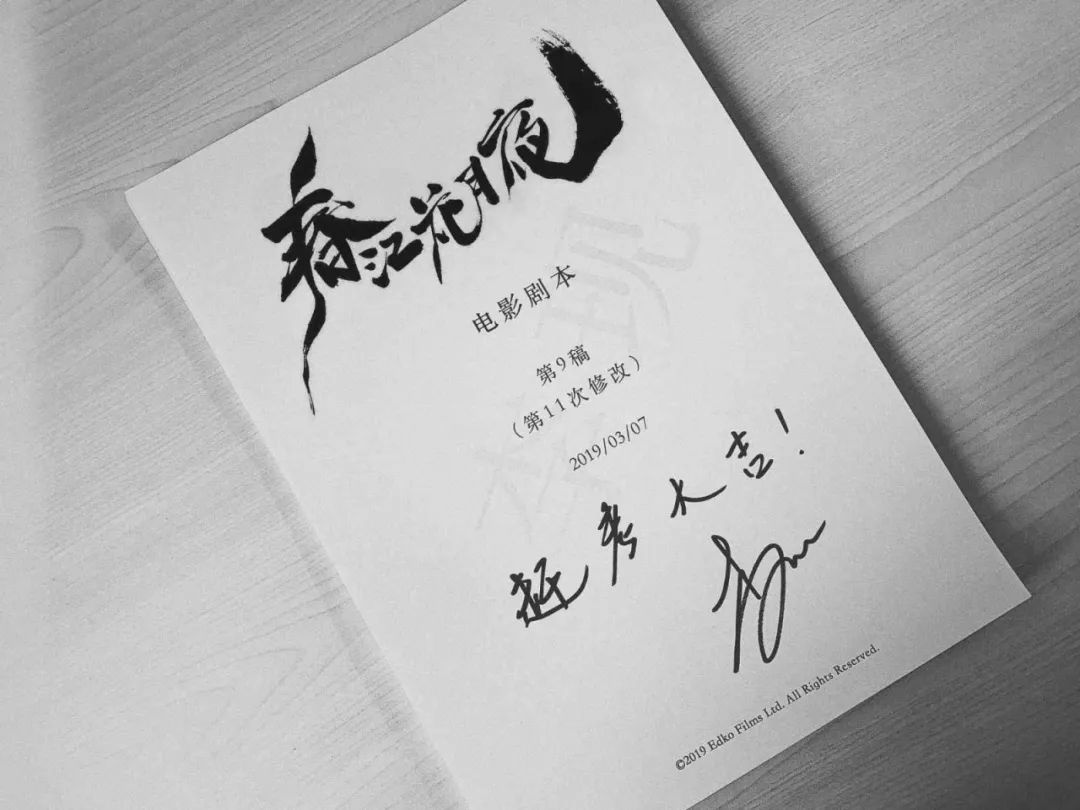 春江花月夜
电影剧本
第9稿
（第11次修改）
2019/03/07
赶考大吉！
©2019 Edko Films Ltd. All Rights Reserved.